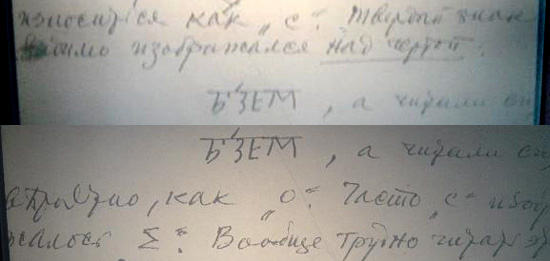 износится как „с". Твердый знак
изображался над чертой.
БЪЗЕМ , а читали ег
БЪЗЕМ , а читали ег
как „о". Часто „с" изоб
жалось Σ". Вообще трудно читать